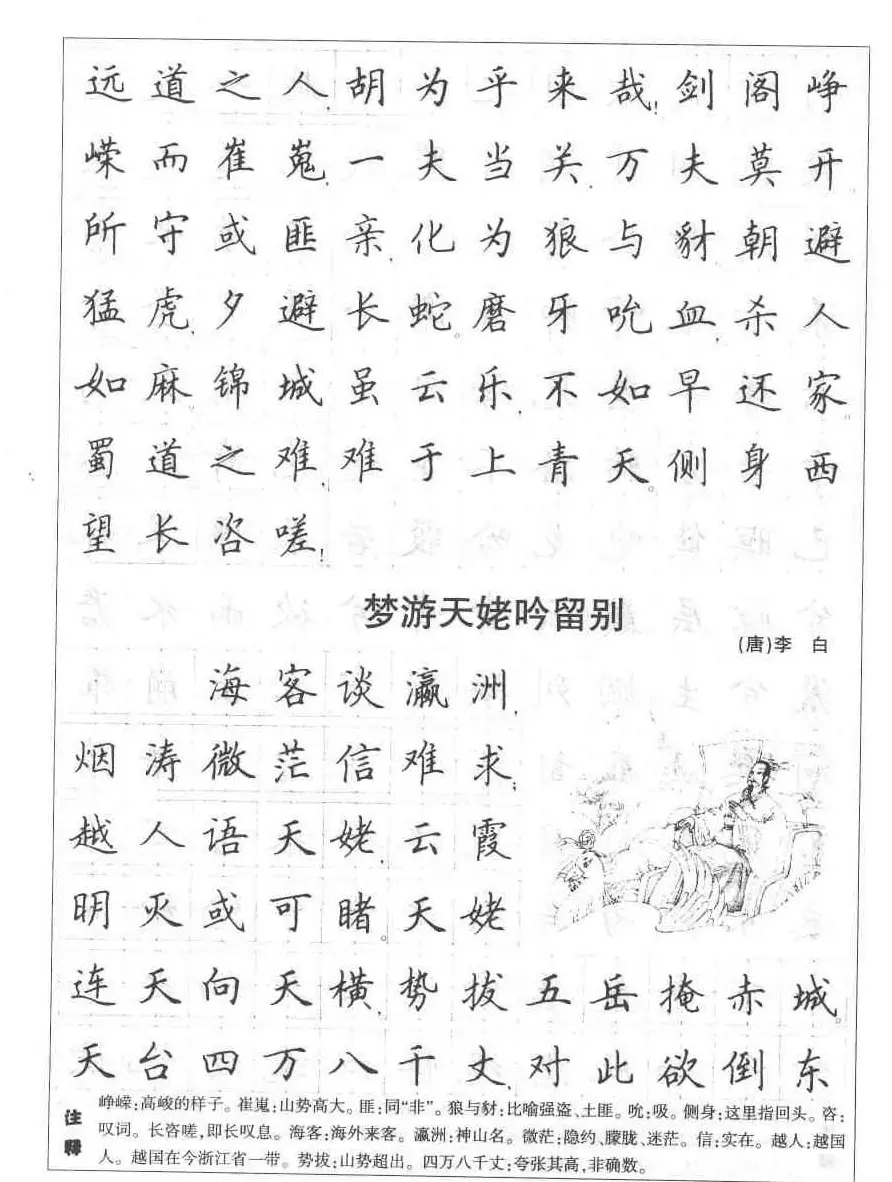 远道之人,胡为乎来哉!剑阁峥
嵘而崔嵬,一夫当关,万夫莫开
所守或匪亲,化为狼与豺,朝避
猛虎,夕避长蛇。磨牙吮血,杀人
如麻锦城虽云乐,不如早还家。
蜀道之难,难于上青天。侧身西
望长咨嗟!
梦游天姥吟留别
(唐)李 白
海客谈瀛洲,
烟涛微茫信难求;
越人语天姥,云霞
明灭或可睹。天姥
连天向天横,势拔五岳掩赤城。
天台四万八千丈,对此欲倒东
注释
峥嵘:高峻的样子。崔嵬:山势高大。匪:同“非”。狼与豺:比喻强盗、土匪。吮:吸。侧身:这里指回头。咨:
叹词。长咨嗟,即长叹息。海客:海外来客。瀛洲:神山名。微茫:隐约、朦胧、迷茫。信:实在。越人:越国
人。越国在今浙江省一带。势拔:山势超出。四万八千丈:夸张其高,非确数。